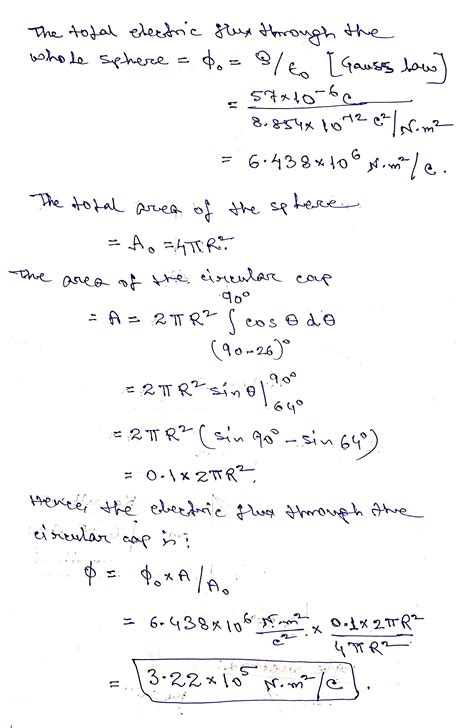 The total electric flux through the
whole sphere = ϕ₀ = Q/ϵ₀ [Gauss law]
= 57×10⁻⁶ C / 8.854×10⁻¹² C²/N·m²
= 6.438×10⁶ N·m²/C.
The total area of the sphere
= A₀ = 4πR².
The area of the circular cap
= A = 2πR² ∫_{(90-26)°}^{90°} cos θ dθ
= 2πR² sin θ |_{64°}^{90°}
= 2πR² (sin 90° - sin 64°)
= 0.1 × 2πR².
Hence, the electric flux through the
circular cap is:
ϕ = ϕ₀ × A/A₀
= 6.438×10⁶ N·m²/C² × 0.1×2πR² / 4πR²
= 3.22×10⁵ N·m²/C.